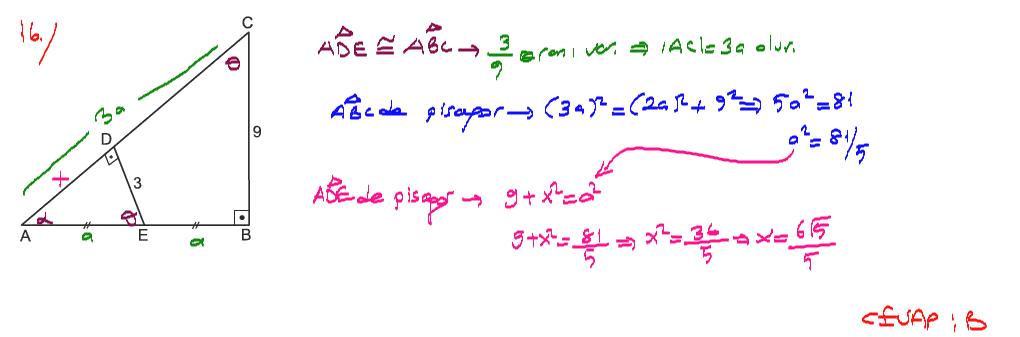 16.)
C
θ
3a
9
D
x
3
α
θ
A
a
E
a
B
ADE ≅ ABC → 3/9 oranı var. ⇒ |AC|=3a olur.
ABC de pisagor → (3a)²=(2a)²+9² ⇒ 5a²=81
a²=81/5
ADE de pisagor → 9+x²=a²
9+x²=81/5 ⇒ x²=36/5 ⇒ x=6√5/5
CEVAP : B